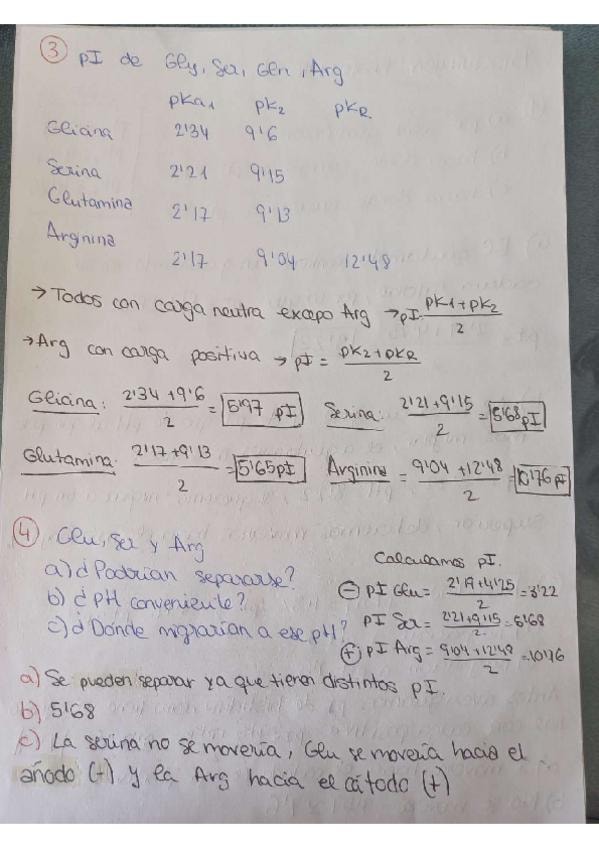 3 pI de Gly, Ser, Gln, Arg
pKa1 pK2 pKR
Glicina 2'34 9'6
Serina 2'21 9'15
Glutamina 2'17 9'13
Arginina 2'17 9'04 12'48
→ Todos con carga neutra excepo Arg → pI = pK1+pK2 / 2
→ Arg con carga positiva → pI = pK2+pKR / 2
Glicina: 2'34+9'6 / 2 = 5'97 pI Serina: 2'21+9'15 / 2 = 5'68 pI
Glutamina: 2'17+9'13 / 2 = 5'65 pI Arginina = 9'04+12'48 / 2 = 10'76 pI
4 Glu, Ser y Arg
a) ¿Podrían separarse?
b) ¿PH conveniente?
c) ¿Dónde migrarían a ese pH?
Calculamos pI.
- pI Glu = 2'19+4'25 / 2 = 3'22
pI Ser = 2'21+9'15 / 2 = 5'68
+ pI Arg = 9'04+12'48 / 2 = 10'76
a) Se pueden separar ya que tienen distintos pI.
b) 5'68
c) La serina no se movería, Glu se movería hacia el
añodo (+) y la Arg hacia el cátodo (+)